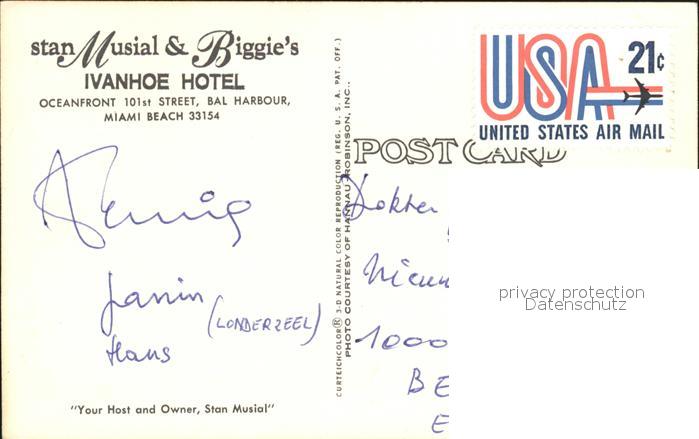 stan Musial & Biggie's
IVANHOE HOTEL
OCEANFRONT 101st STREET, BAL HARBOUR,
MIAMI BEACH 33154
USA 21¢
UNITED STATES AIR MAIL
POST CARD
CURTEICHCOLOR® 3-D NATURAL COLOR REPRODUCTION (REG. U. S. A. PAT. OFF.)
PHOTO COURTESY OF HANNAU ROBINSON, INC.
Janin
(LONDERZEEL)
Hans
Dokter
Nieuw
1000
BE
E
privacy protection
Datenschutz
"Your Host and Owner, Stan Musial"